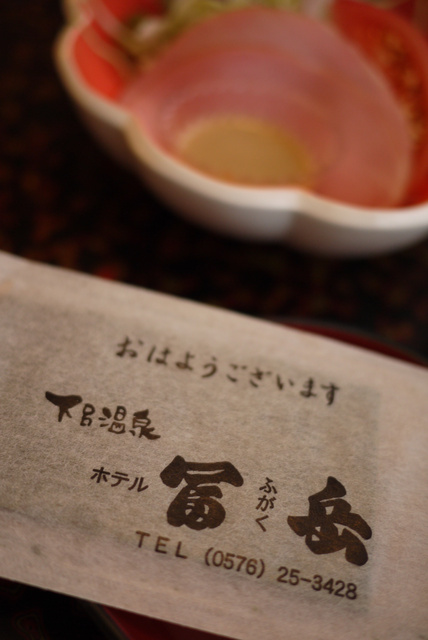 おはようございます
下呂温泉
ホテル 冨岳 ふがく
TEL (0576) 25-3428